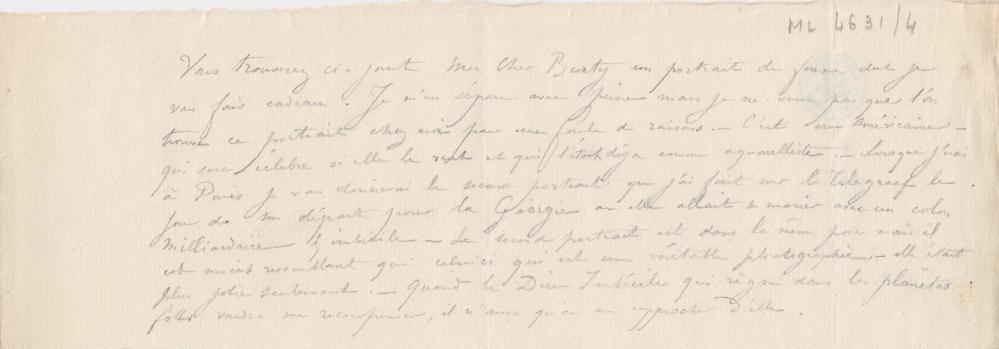 ML 4631/4
Vous trouverez ci-joint Mon Cher Burty un portrait de femme dont je
vous fais cadeau. Je m'en sépare avec peine mais je ne veux pas que l'on
trouve ce portrait chez moi par une foule de raisons. — C'est une Américaine —
qui sera célèbre si elle le veut et qui l'était déja comme aquarelliste. — Lorsque j'irai
à Paris je vous donnerai le second portrait que j'ai fait sur le Telegraaf le
jour de son départ pour la Géorgie où elle allait se marier avec un colon
Milliardaire & imbécile — Le second portrait est dans la même pose mais il
est moins ressemblant que celui ci qui est une véritable photographie. — elle était
plus jolie seulement. — Quand le Dieu Imbécile qui règne dans les planètes
folles voudra me récompenser, il n'aura qu'à me rapprocher d'elle.